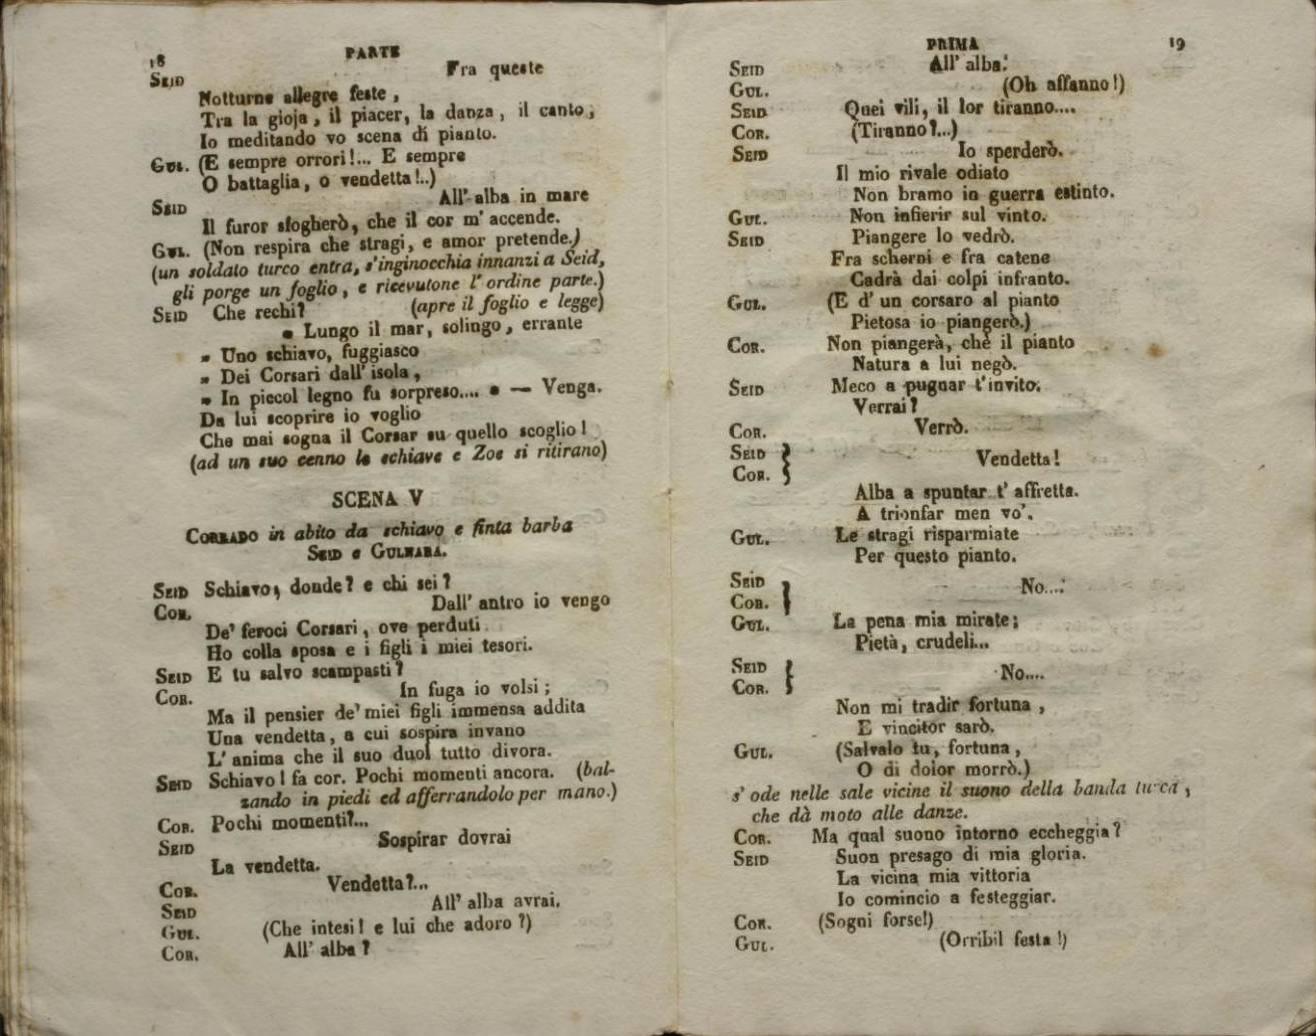 18 PARTE
SEID Fra queste
Notturne allegre feste,
Tra la gioja, il piacer, la danza, il canto,
Io meditando vo scena di pianto.
GUL. (E sempre orrori!... E sempre
O battaglia, o vendetta!..)
SEID All' alba in mare
Il furor sfogherò, che il cor m' accende.
GUL. (Non respira che stragi, e amor pretende.)
(un soldato turco entra, s'inginocchia innanzi a Seid,
gli porge un foglio, e ricevutone l' ordine parte.)
SEID Che rechi? (apre il foglio e legge)
„ Lungo il mar, solingo, errante
„ Uno schiavo, fuggiasco
„ Dei Corsari dall' isola,
„ In piccol legno fu sorpreso.... „ — Venga.
Da lui scoprire io voglio
Che mai sogna il Corsar su quello scoglio!
(ad un suo cenno le schiave e Zoe si ritirano)
SCENA V
CORRADO in abito da schiavo e finta barba
SEID e GULNARA.
SEID Schiavo, donde? e chi sei?
COR. Dall' antro io vengo
De' feroci Corsari, ove perduti
Ho colla sposa e i figli i miei tesori.
SEID E tu salvo scampasti?
COR. In fuga io volsi;
Ma il pensier de' miei figli immensa addita
Una vendetta, a cui sospira invano
L' anima che il suo duol tutto divora.
SEID Schiavo! fa cor. Pochi momenti ancora. (bal-
zando in piedi ed afferrandolo per mano.)
COR. Pochi momenti?...
SEID Sospirar dovrai
La vendetta.
COR. Vendetta?...
SEID All' alba avrai.
GUL. (Che intesi! e lui che adoro?)
COR. All' alba?
PRIMA 19
SEID All' alba.
GUL. (Oh affanno!)
SEID Quei vili, il lor tiranno....
COR. (Tiranno?...)
SEID Io sperderò.
Il mio rivale odiato
Non bramo in guerra estinto.
GUL. Non infierir sul vinto.
SEID Piangere lo vedrò.
Fra scherni e fra catene
Cadrà dai colpi infranto.
GUL. (E d' un corsaro al pianto
Pietosa io piangerò.)
COR. Non piangerà, chè il pianto
Natura a lui negò.
SEID Meco a pugnar t' invito.
Verrai?
COR. Verrò.
SEID }
COR. } Vendetta!
Alba a spuntar t' affretta.
A trionfar men vo'.
GUL. Le stragi risparmiate
Per questo pianto.
SEID }
COR. } No....
GUL. La pena mia mirate;
Pietà, crudeli...
SEID }
COR. } No....
Non mi tradir fortuna,
E vincitor sarò.
GUL. (Salvalo tu, fortuna,
O di dolor morrò.)
s' ode nelle sale vicine il suono della banda turca,
che dà moto alle danze.
COR. Ma qual suono intorno eccheggia?
SEID Suon presago di mia gloria.
La vicina mia vittoria
Io comincio a festeggiar.
COR. (Sogni forse!)
GUL. (Orribil festa!)